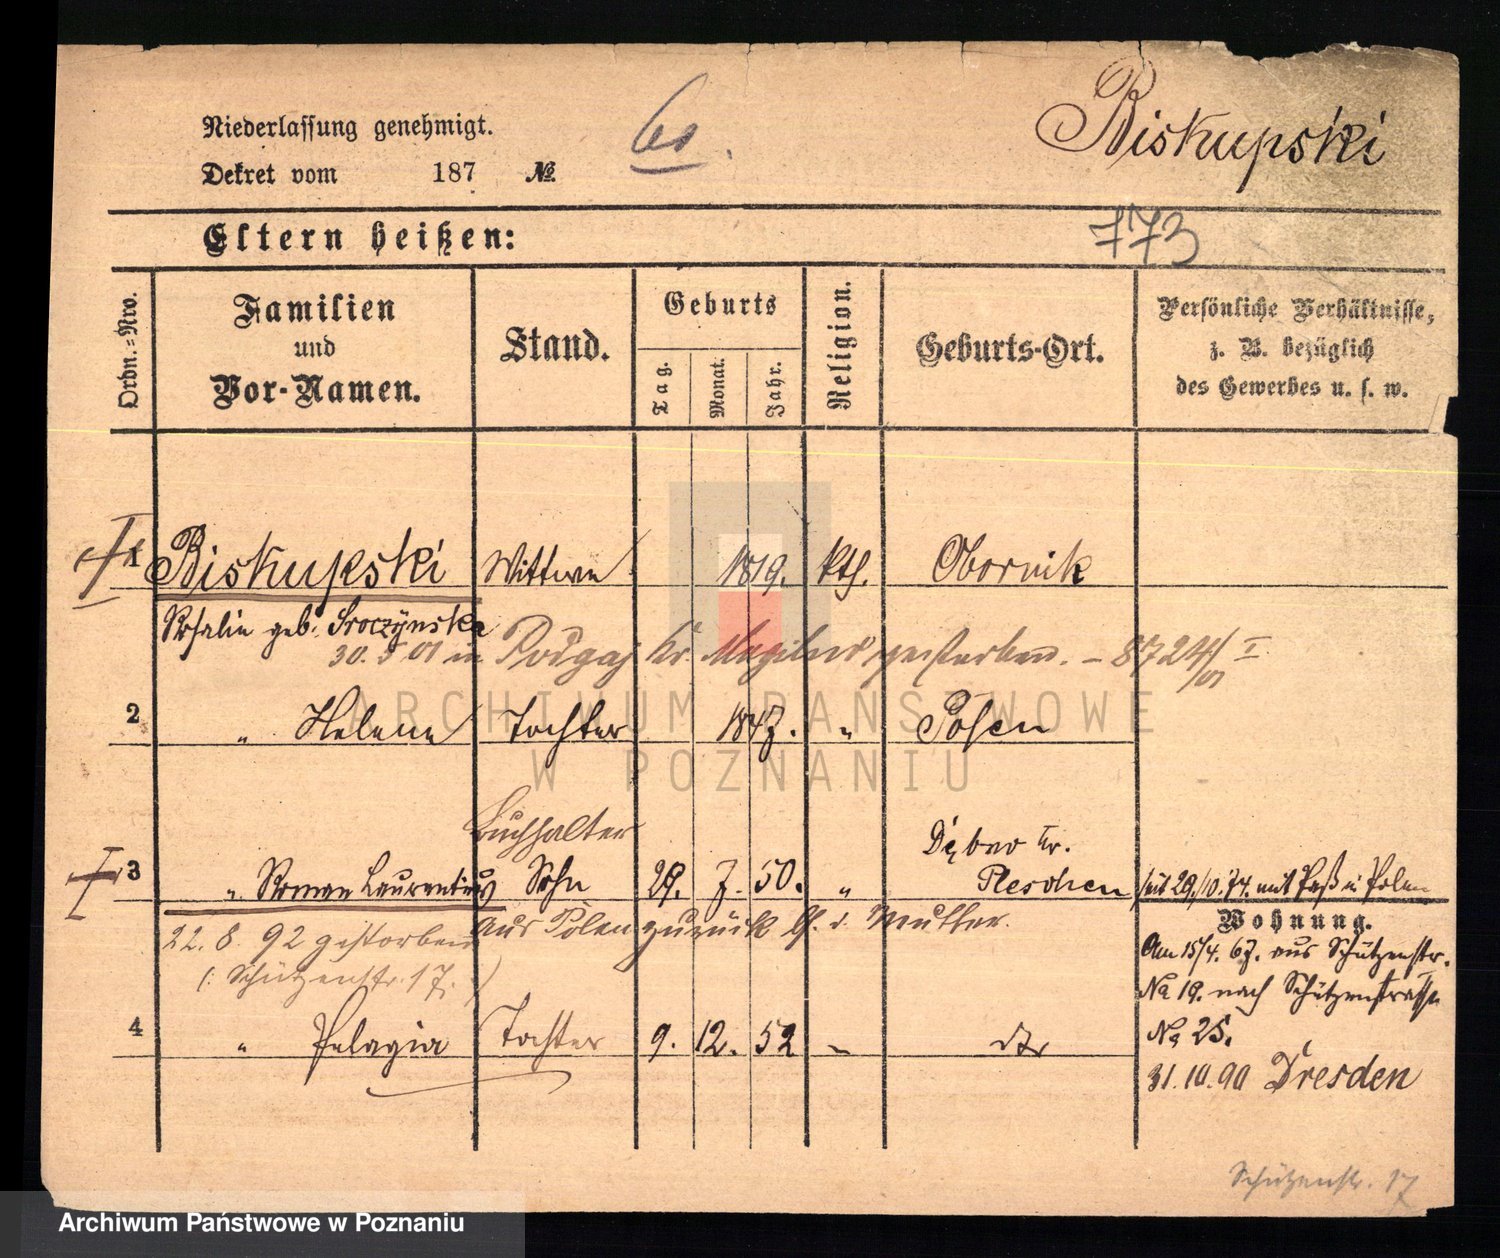 Niederlassung genehmigt.
Dekret vom 187 №.
Biskupski
773
Eltern heißen:
Ordn.-Nro.
Familien und Vor-Namen.
Stand.
Geburts
Tag. Monat. Jahr.
Religion.
Geburts-Ort.
Persönliche Verhältnisse,
z. B. bezüglich
des Gewerbes u. s. w.
1 Biskupski Wittwe 1819. kth. Obornik
Rosalie geb. Sroczynska
30. 5 01 in Podgaj Kr. Mogilno gestorben. – 8724/01 I
2 " Helene Tochter 1847. " Posen
Buchhalter
3 " Roman Laurentius Sohn 29. 7. 50. " Dębno Kr. Pleschen
seit 29./10. 74. mit Paß in Polen
aus Polen zurück b. d. Mutter.
22. 8. 92 gestorben
(: Schützenstr. 17. )
Wohnung.
Am 15/4. 67. aus Schützenstr.
No 19. nach Schützenstrasse
No 25.
31.10.90 Dresden
4 " Pelagia Tochter 9. 12. 52 " dto
Schützenstr. 17
ARCHIWUM PAŃSTWOWE
W POZNANIU
Archiwum Państwowe w Poznaniu